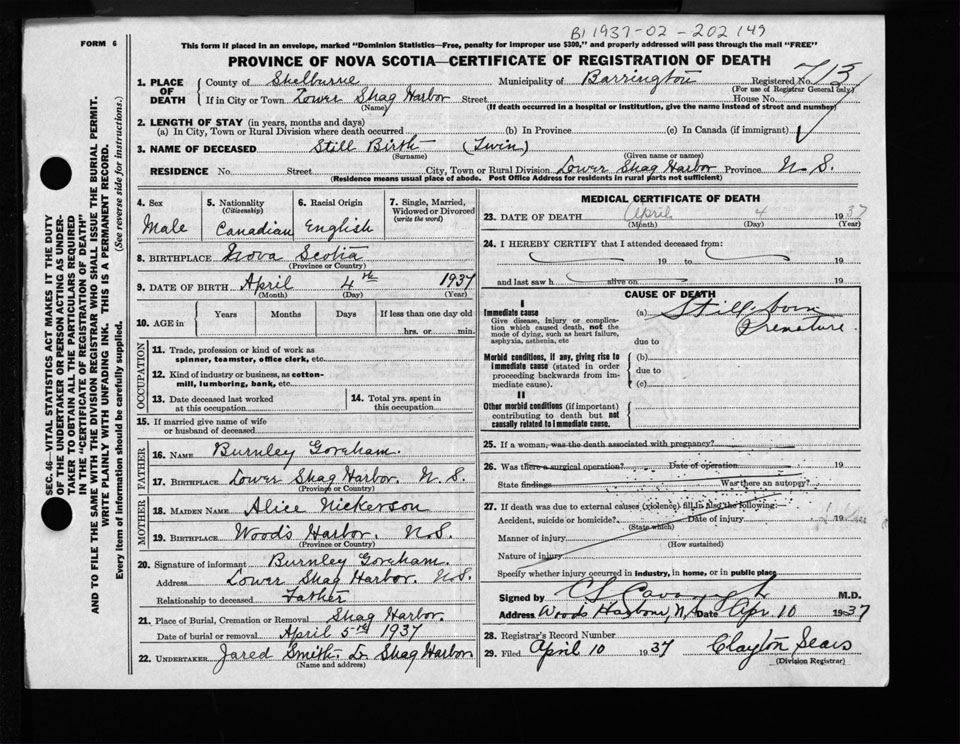 B1 1937-02-202149
FORM 6
This form if placed in an envelope, marked "Dominion Statistics—Free, penalty for improper use $300," and properly addressed will pass through the mail "FREE"
PROVINCE OF NOVA SCOTIA—CERTIFICATE OF REGISTRATION OF DEATH
1. PLACE OF DEATH County of Shelburne Municipality of Barrington Registered No. 713
(For use of Registrar General only)
If in City or Town Lower Shag Harbor Street House No.
(Name) (If death occurred in a hospital or institution, give the name instead of street and number)
2. LENGTH OF STAY (in years, months and days)
(a) In City, Town or Rural Division where death occurred (b) In Province (c) In Canada (if immigrant)
3. NAME OF DECEASED Still Birth (Twin)
(Surname) (Given name or names)
RESIDENCE No. Street City, Town or Rural Division Lower Shag Harbor Province N.S.
(Residence means usual place of abode. Post Office Address for residents in rural parts not sufficient)
SEC. 46 VITAL STATISTICS ACT MAKES IT THE DUTY
OF THE UNDERTAKER OR PERSON ACTING AS UNDER-
TAKER TO OBTAIN ALL THE PARTICULARS REQUIRED
IN THE "CERTIFICATE OF REGISTRATION OF DEATH"
AND TO FILE THE SAME WITH THE DIVISION REGISTRAR WHO SHALL ISSUE THE BURIAL PERMIT.
WRITE PLAINLY WITH UNFADING INK. THIS IS A PERMANENT RECORD.
Every item of information should be carefully supplied. (See reverse side for instructions.)
4. Sex 5. Nationality (Citizenship) 6. Racial Origin 7. Single, Married, Widowed or Divorced (write the word)
Male Canadian English
8. BIRTHPLACE Nova Scotia
(Province or Country)
9. DATE OF BIRTH April 4th 1937
(Month) (Day) (Year)
10. AGE in Years Months Days If less than one day old
hrs. or min.
OCCUPATION
11. Trade, profession or kind of work as
spinner, teamster, office clerk, etc.
12. Kind of industry or business, as cotton-
mill, lumbering, bank, etc.
13. Date deceased last worked at this occupation 14. Total yrs. spent in this occupation
15. If married give name of wife
or husband of deceased
FATHER
16. NAME Burnley Goreham.
17. BIRTHPLACE Lower Shag Harbor. N.S.
(Province or Country)
MOTHER
18. MAIDEN NAME Alice Nickerson
19. BIRTHPLACE Woods Harbor. N.S.
(Province or Country)
20. Signature of informant Burnley Goreham.
Address Lower Shag Harbor. N.S.
Relationship to deceased Father
21. Place of Burial, Cremation or Removal Shag Harbor.
Date of burial or removal April 5th 1937
22. UNDERTAKER Jared Smith. L. Shag Harbor
(Name and address)
MEDICAL CERTIFICATE OF DEATH
23. DATE OF DEATH April 4 1937
(Month) (Day) (Year)
24. I HEREBY CERTIFY that I attended deceased from:
19 to 19
and last saw h alive on 19
CAUSE OF DEATH
I
Immediate cause (a) Still born
Give disease, injury or complica- Premature.
tion which caused death, not the
mode of dying, such as heart failure,
asphyxia, asthenia, etc due to
Morbid conditions, if any, giving rise to (b)
immediate cause (stated in order due to
proceeding backwards from im-
mediate cause). (c)
II
Other morbid conditions (if important)
contributing to death but not
causally related to immediate cause.
25. If a woman, was the death associated with pregnancy?
26. Was there a surgical operation? Date of operation 19
State findings Was there an autopsy?
27. If death was due to external causes (violence) fill in also the following:
Accident, suicide or homicide? Date of injury 19
(State which)
Manner of injury
(How sustained)
Nature of injury
Specify whether injury occurred in industry, in home, or in public place
Signed by M.D.
Address Woods Harbour, N.S. Date Apr. 10 1937
28. Registrar's Record Number
29. Filed April 10 1937 Clayton Sears
(Division Registrar)